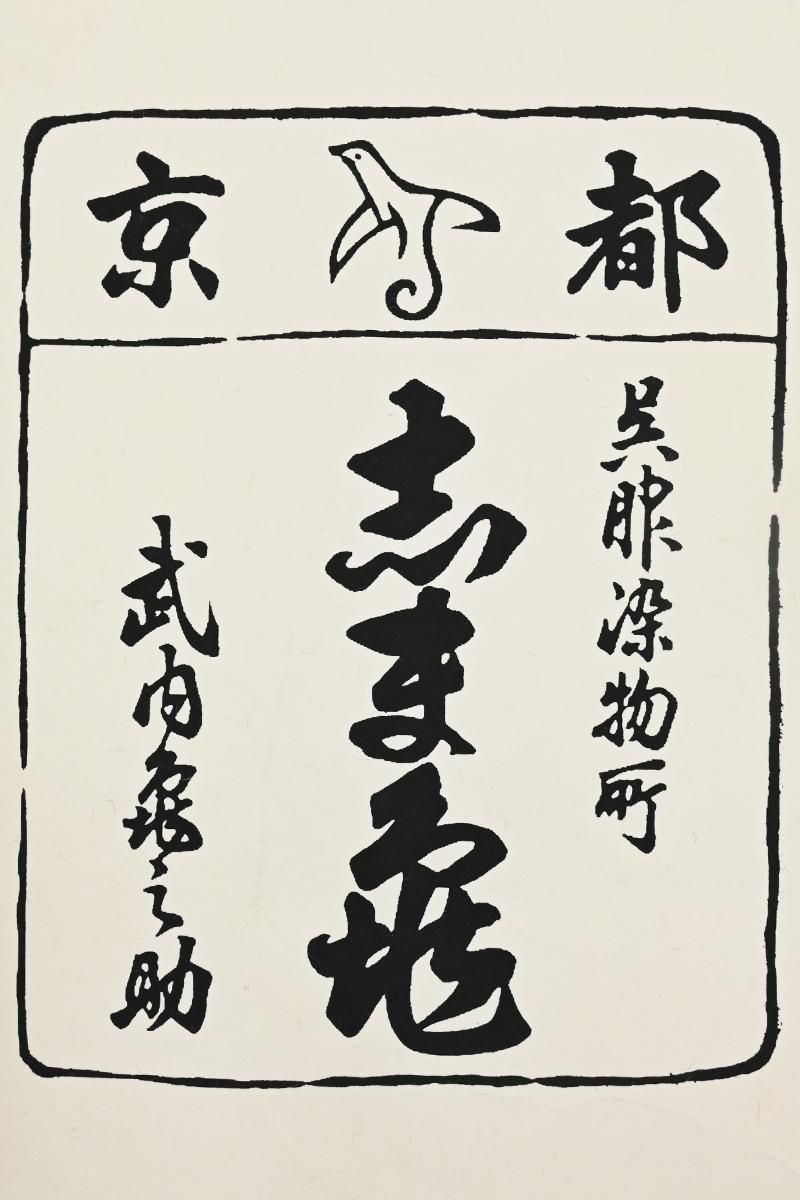 京都
呉服染物所
志ま龜
武内龜之助